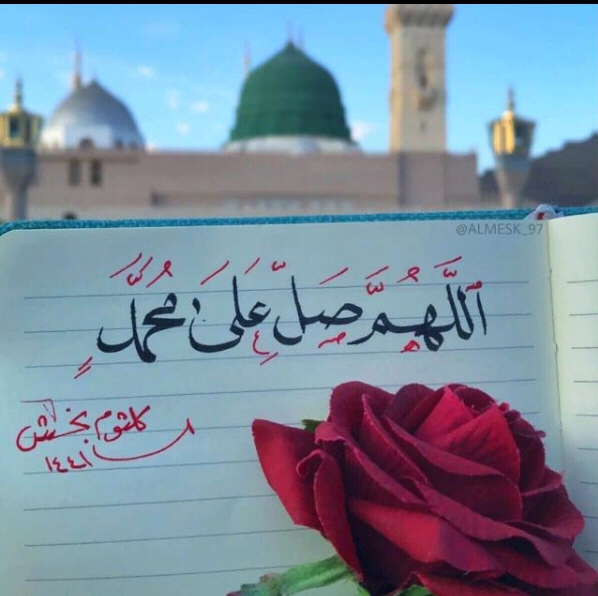 @ALMESK_97
اَللَّهُمَّ صَلِّ عَلَىٰ مُحَمَّدٍ
كلثوم بخش
١٤٤١